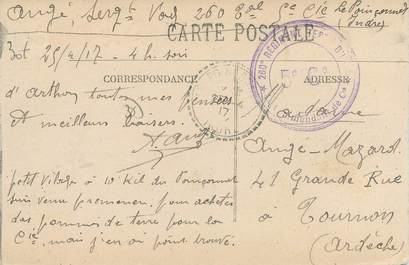 Angé, Sergt 260 5e Cie Le Poinçonnet
(Indre)
CARTE POSTALE
25/4/17 - 4h soir
CORRESPONDANCE
ADRESSE
d'Arthon toutes mes pensées
et meilleurs baisers.
A. Angé
petit village à 10 kil du Poinçonnet
suis venu promener, pour acheter
des pommes de terre pour la
Cie, mais j'en ai point trouvé.
260e
5e Cie
17
Madame
Angé-Mazard
41 Grande Rue
à Tournon
(Ardèche)